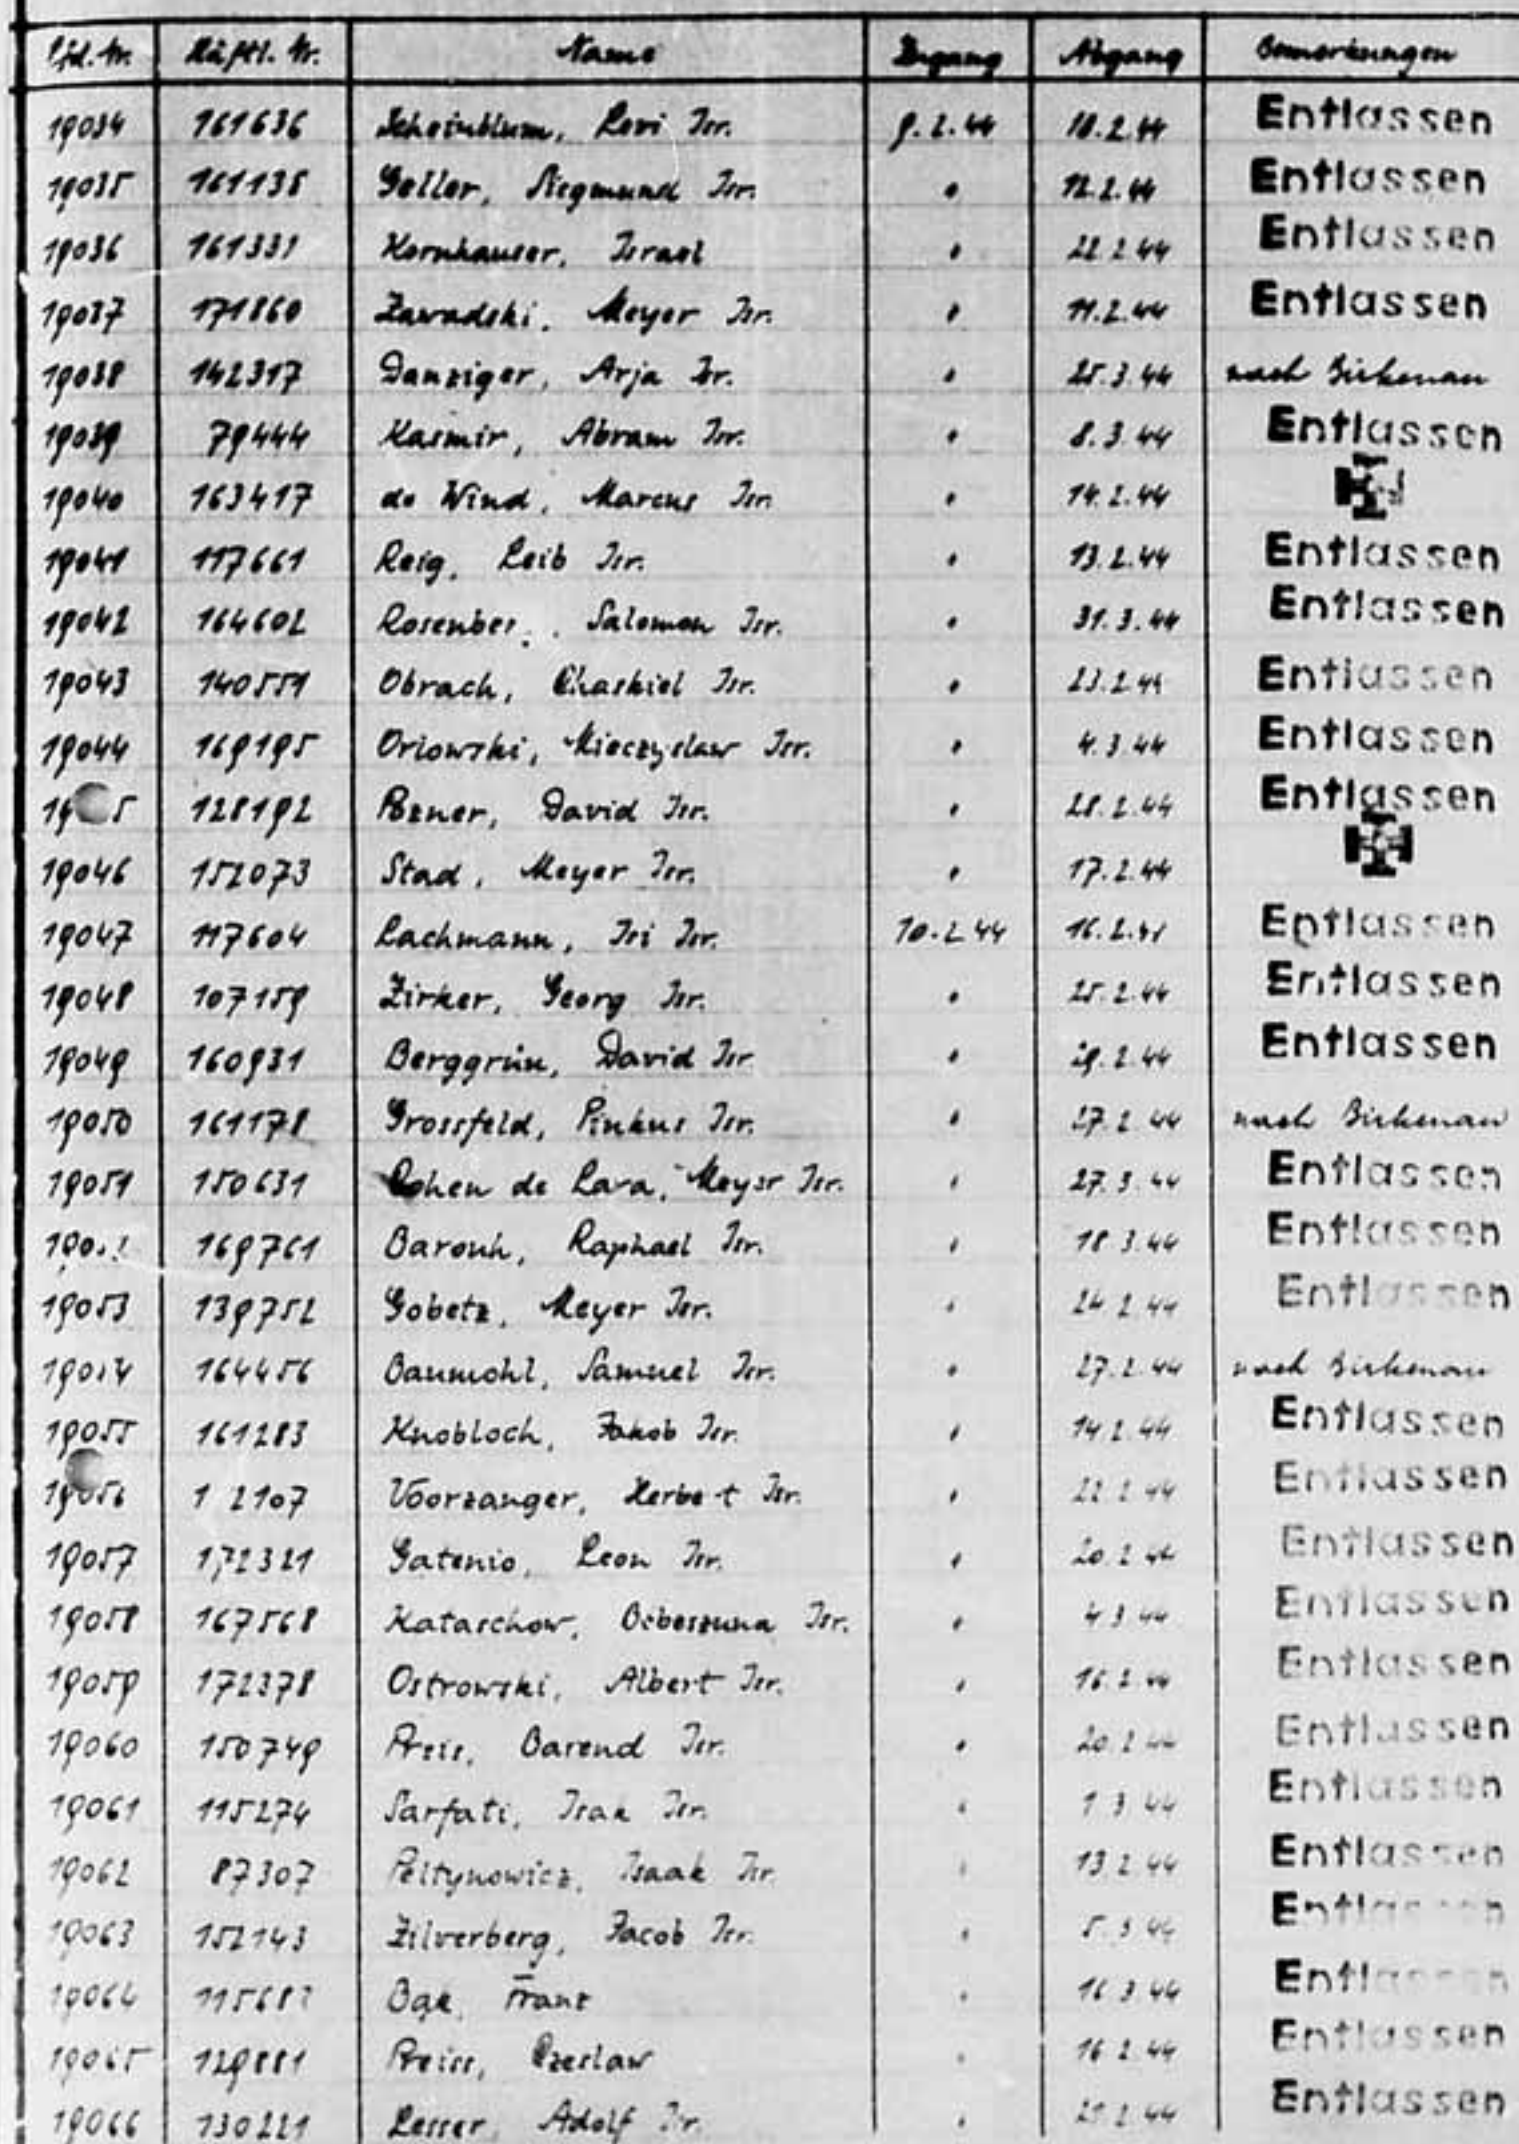 Lfd. Nr. Häftl. Nr. Name Zugang Abgang Bemerkungen
19034 161636 Scheinblum, Levi Isr. 9.2.44 10.2.44 Entlassen
19035 161138 Geller, Siegmund Isr. " 12.2.44 Entlassen
19036 161331 Kornhauser, Israel " 22.2.44 Entlassen
19037 171860 Zawadski, Meyer Isr. " 11.2.44 Entlassen
19038 142317 Danziger, Arja Isr. " 25.3.44 nach Birkenau
19039 79444 Kasmir, Abram Isr. " 8.3.44 Entlassen
19040 163417 de Wind, Marcus Isr. " 14.2.44
19041 117661 Leig, Leib Isr. " 13.2.44 Entlassen
19042 164602 Salomon Isr. " 31.3.44 Entlassen
19043 140551 Obrach, Chaskiel Isr. " 23.2.44 Entlassen
19044 169195 Orlowski, Mieczyslaw Isr. " 4.3.44 Entlassen
128192 Pozner, David Isr. " 28.2.44 Entlassen
19046 152073 Stad, Meyer Isr. " 17.2.44
19047 117604 Lachmann, Isi Isr. 10.2.44 16.2.44 Entlassen
19048 107159 Zirker, Georg Isr. " 25.2.44 Entlassen
19049 160931 Berggrün, David Isr " 29.2.44 Entlassen
19050 161178 Grossfeld, Pinkus Isr. " 27.2.44 nach Birkenau
19051 150631 Cohen de Lara, Meyer Isr. " 27.3.44 Entlassen
169761 Barouh, Raphael Isr. " 18.3.44 Entlassen
19053 139752 Gobetz, Meyer Isr. " 24.2.44 Entlassen
19054 164456 Baumohl, Samuel Isr. " 27.2.44 nach Birkenau
19055 161283 Knobloch, Jakob Isr. " 14.2.44 Entlassen
19056 Voorzanger, Herbert Isr. " 22.2.44 Entlassen
19057 172321 Gatenio, Leon Isr. " 20.2.44 Entlassen
19058 167568 Kataschow, Isr. " 4.3.44 Entlassen
19059 172378 Ostrowski, Albert Isr. " 16.2.44 Entlassen
19060 150749 Preis, Barend Isr. " 20.2.44 Entlassen
19061 115274 Sarfati, Isak Isr. " 1.3.44 Entlassen
19062 87307 Peltynowicz, Isaak Isr. " 13.2.44 Entlassen
19063 152143 Zilverberg, Jacob Isr. " 5.3.44 Entlassen
19064 Franz " 16.3.44 Entlassen
19065 129881 Preiss, Czeslaw " 16.2.44 Entlassen
19066 130221 Lesser, Adolf Isr. " 21.2.44 Entlassen